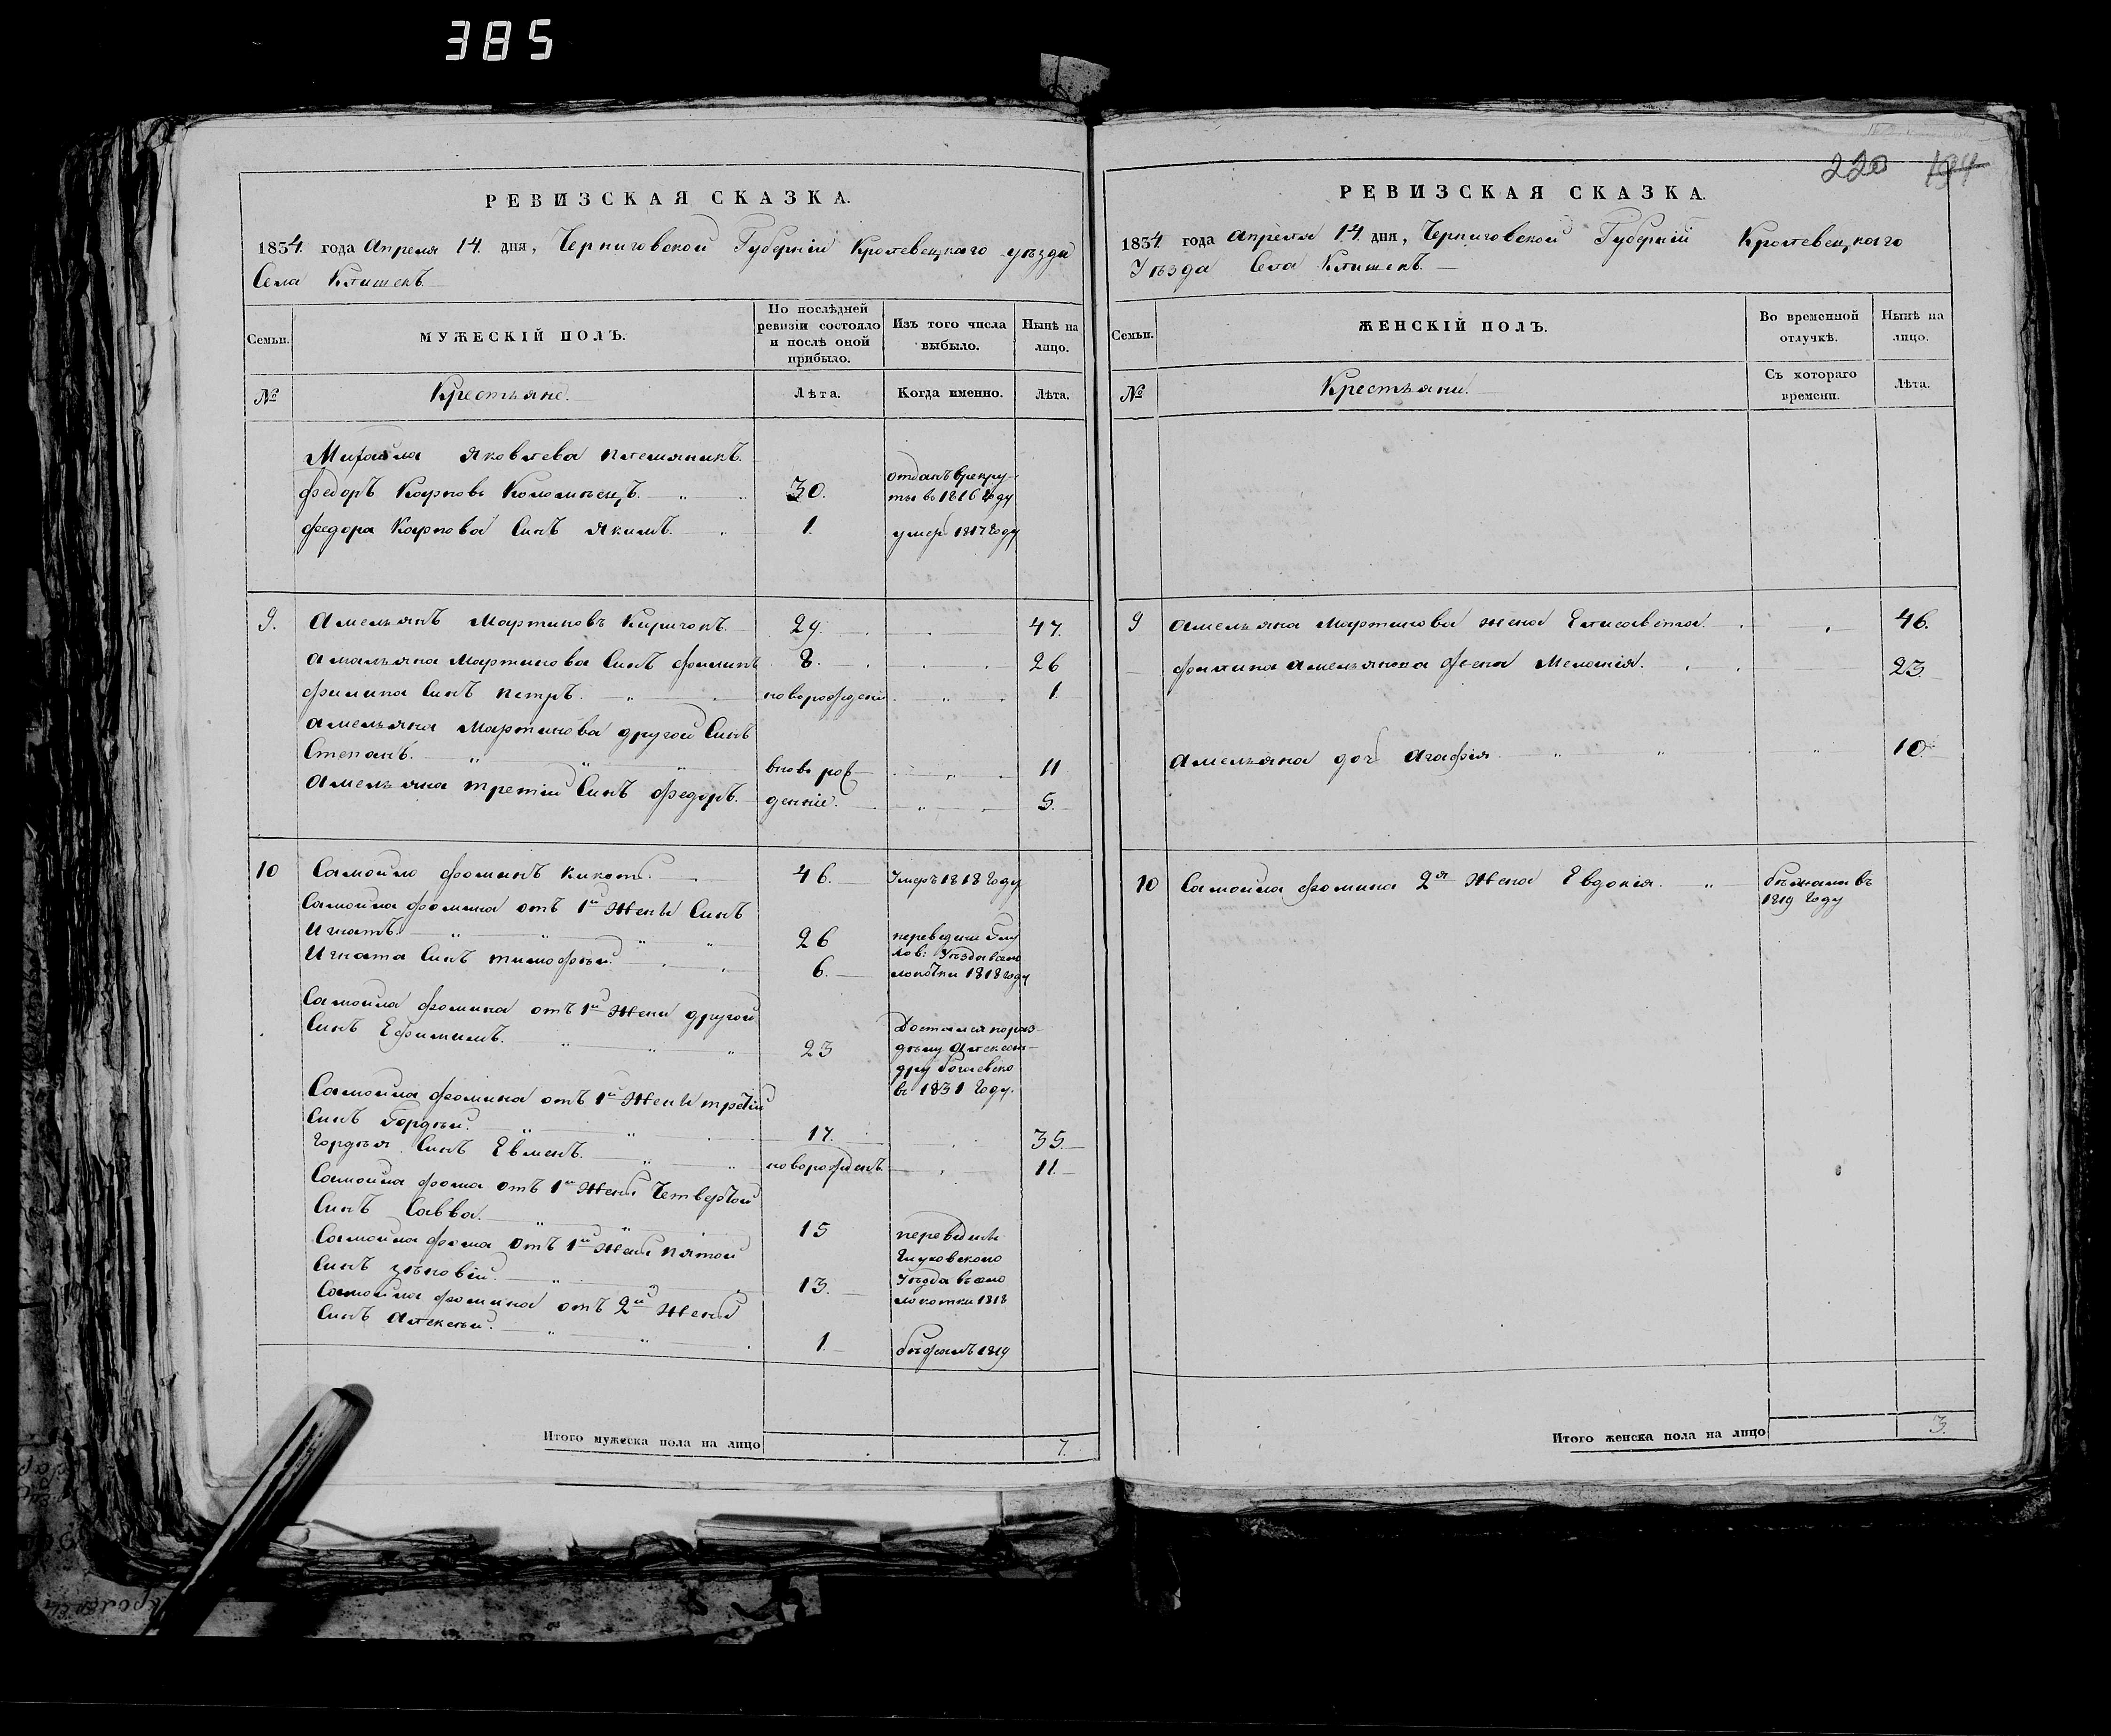 385
РЕВИЗСКАЯ СКАЗКА.
1834 года Апреля 14. дня, Черниговской Губерніи Кролевецкаго уѣзда
Села Клишекъ.
Семьи.
МУЖЕСКІЙ ПОЛЪ.
По послѣдней ревизіи состояло и послѣ оной прибыло.
Изъ того числа выбыло.
Нынѣ на лицо.
№
Крестьяне.
Лѣта.
Когда именно.
Лѣта.
Михайла Яковлева племяникъ
Федоръ Карповъ Коломѣецъ. 30. отданъ врекру-
ты въ 1816 году
Федора Карпова Синъ Якимъ. 1. умер 1817 году
9. Амельянъ Мартиновъ 29. 47.
Амельяна Мартинова Синъ Филипъ 8. 26
Филипа Синъ Петръ. новорожденій 1.
Амельяна Мартинова другой Синъ
Степанъ. вновь рож 11
Амельяна третій Синъ Федоръ. денніе. 5.
10 Самойло Фоминъ 46. Умеръ 1818 году
Самойла Фомина отъ 1й Жени Синъ
Игнатъ. 26 переведени Глу
Игната Синъ Тимофѣй. 6. хов: Уѣзда всело
локотки 1818 году
Самойла Фомина отъ 1й Жени другой
Синъ Ефимимъ. 23 Достался пораз-
дѣлу Алексан-
дру
въ 1831 году.
Самойла Фомина отъ 1й Жени третій
Синъ Гордѣй. 17. 35.
Гордѣя Синъ Евменъ. новорожденъ 11.
Самойла Фома отъ 1й Жени Четвертой
Синъ Савва. 15 переведени
Самойла Фома Отъ 1й Жени пятой Глуховского
Синъ Зѣновій. 13. Уѣзда въ село
Самойла Фомина отъ 2й Жени локотки 1818
Синъ Алексѣй. 1. бѣжалъ 1819
Итого мужеска пола на лицо 7.
220 194
РЕВИЗСКАЯ СКАЗКА.
1834 года Апреля 14. дня, Черниговской Губерній Кролевецкаго
Уѣзда Села Клишекъ.
Семьи.
ЖЕНСКІЙ ПОЛЪ.
Во временной отлучкѣ.
Нынѣ на лицо.
№
Крестьяни.
Съ котораго времени.
Лѣта.
9 Амельяна Мартинова жена Елисавета. 46.
Филипа Амельянова жена Меланія. 23.
Амельяна доч Агафія 10.
10 Самойла Фомина 2я Жена Евдокія. бѣжала въ
1819 году
Итого женска пола на лицо 3.